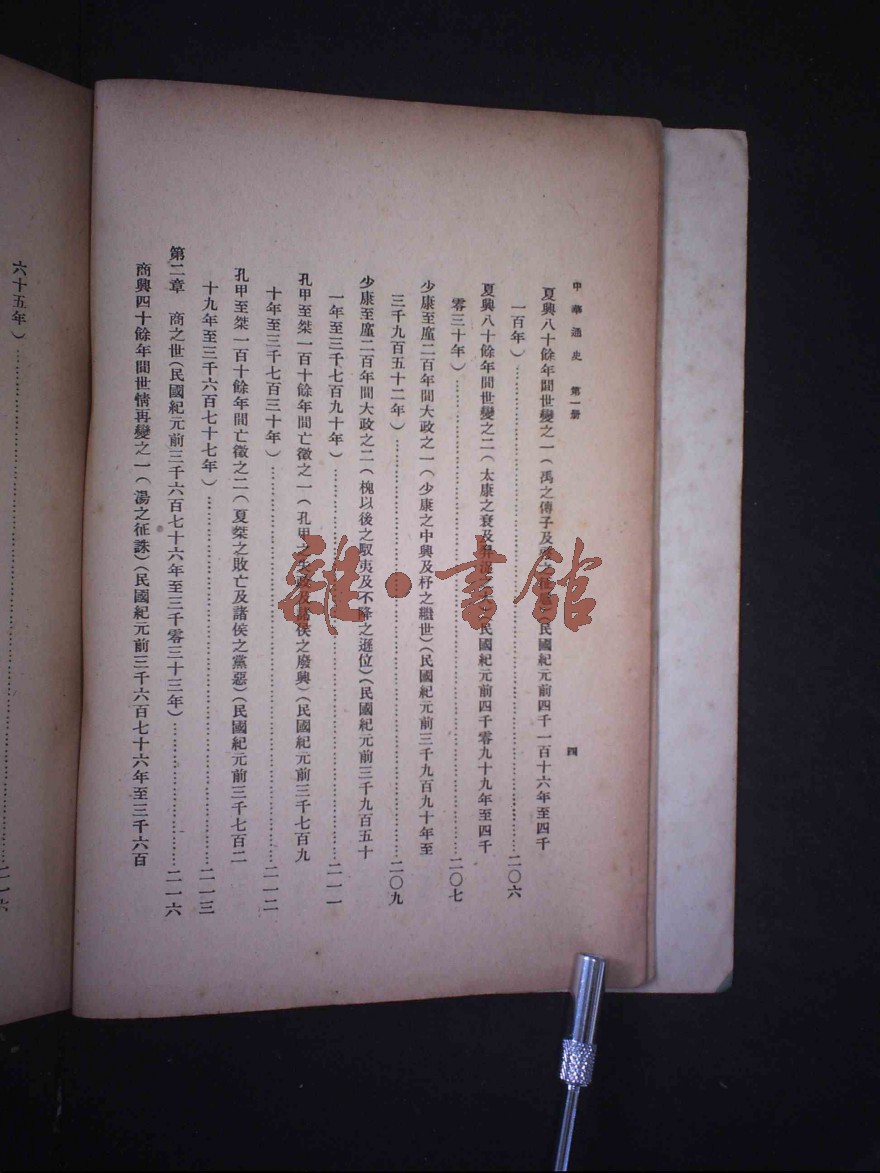 中華通史 第一册
四
夏興八十餘年間世變之一(禹之傳子及 民國紀元前四千一百十六年至四千
一百年)……二〇六
夏興八十餘年間世變之二(太康之衰及羿浞之 民國紀元前四千零九十九年至四千
零三十年)……二〇七
少康至廑二百年間大政之一(少康之中興及杼之繼世)(民國紀元前三千九百九十年至
三千九百五十二年)……二〇九
少康至廑二百年間大政之二(槐以後之馭夷及不降之遜位)(民國紀元前三千九百五十
一年至三千七百九十年)……二一一
孔甲至桀一百十餘年間亡徵之一(孔甲之失政及諸侯之廢興)(民國紀元前三千七百九
十年至三千七百三十年)……二一二
孔甲至桀一百十餘年間亡徵之二(夏桀之敗亡及諸侯之黨惡)(民國紀元前三千七百二
十九年至三千六百七十七年)……二一三
第二章 商之世(民國紀元前三千六百七十六年至三千零三十三年)……二一六
商興四十餘年間世情再變之一(湯之征誅)(民國紀元前三千六百七十六年至三千六百
六十五年)……二一六
雜·書館